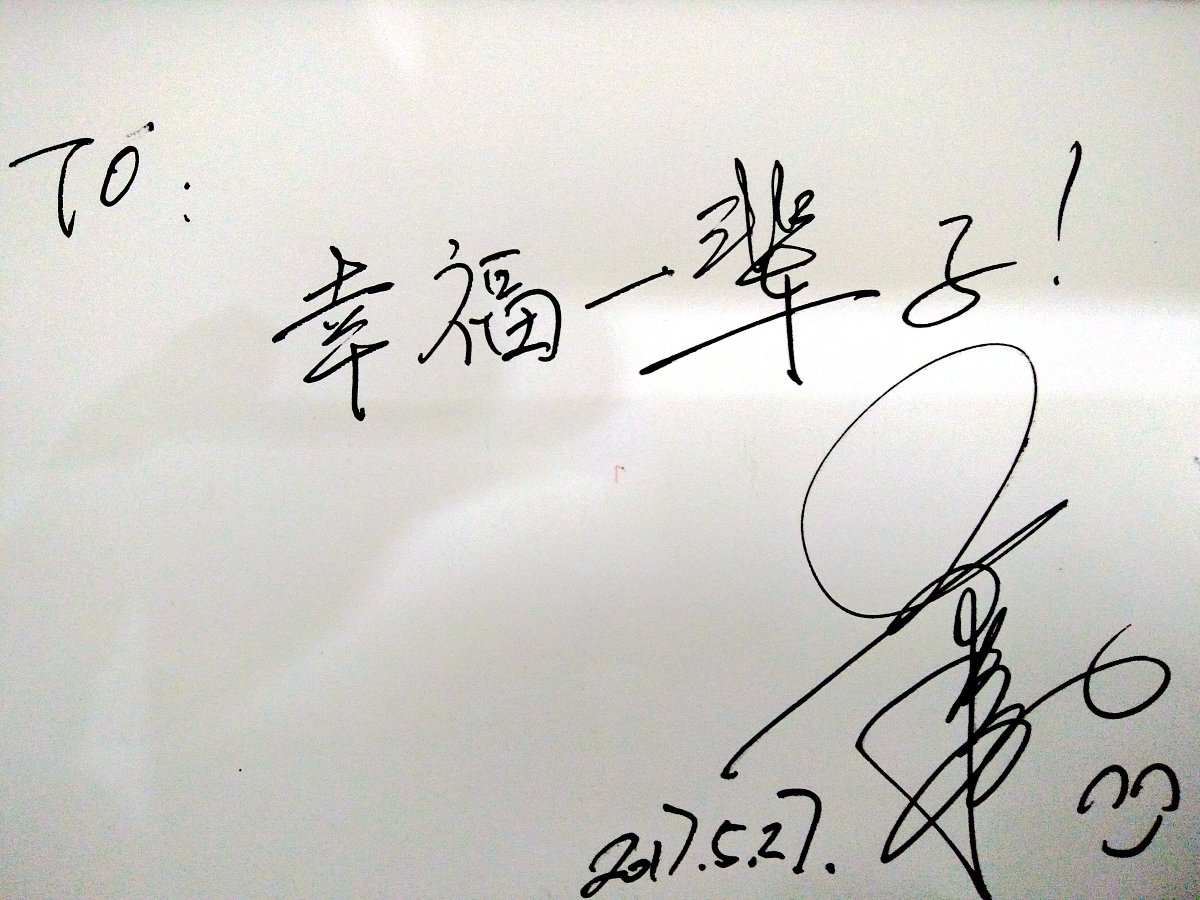 TO:
幸福一辈子!
2017.5.27.